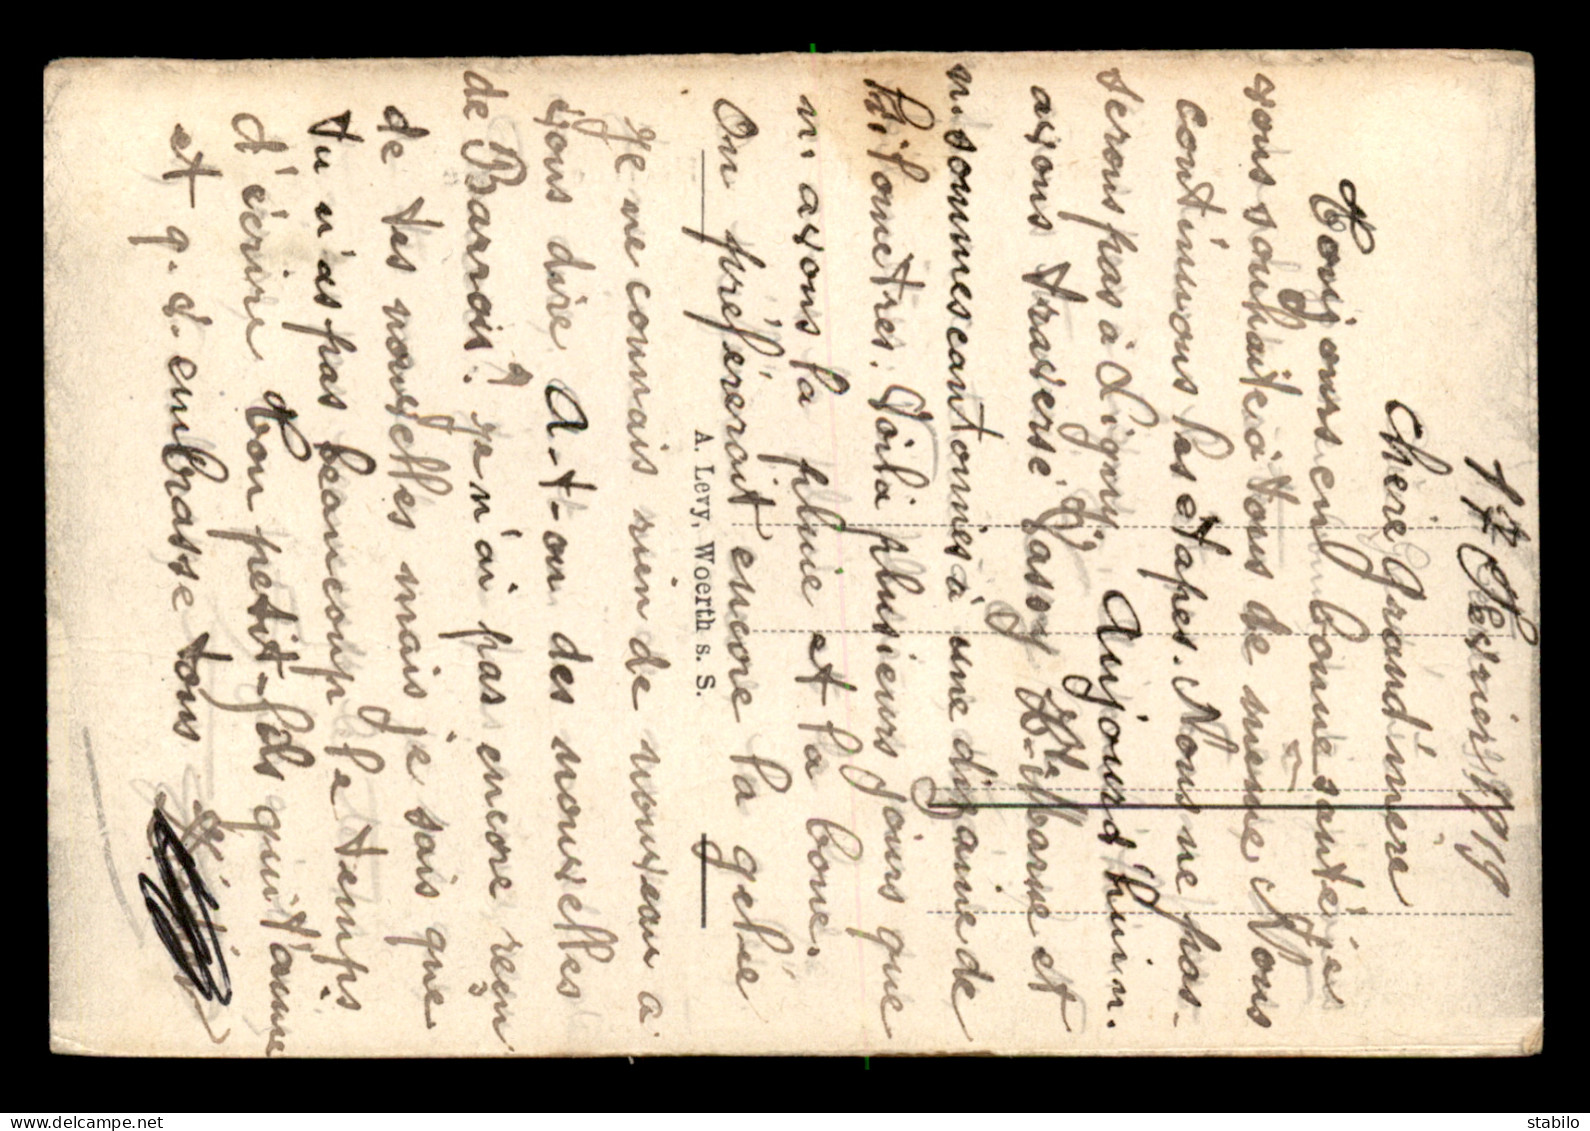 17 Février 1919
Chère Grand'mère
Toujours en bonne santé je
vous souhaite à tous de meme Nous
continuons les étapes. Nous ne pas-
serons pas à Ligny. Aujourd'hui n.
avons traversé Vassy Mtier-Marse et
n. sommes cantonnés à une dizaine de
kilometres. Voila plusieurs jours que
n. avons la pluie et la boue.
On préférerait encore la gelée
Je ne connais rien de nouveau a
vous dire A-t-on des nouvelles
de Barrois? je n'ai pas encore reçu
de tes nouvelles mais je sais que
tu n'as pas beaucoup le temps
d'écrire Ton petit-fils qui t'aime
et q. v. embrasse tous
A. Levy, Woerth s. S.
stabilo